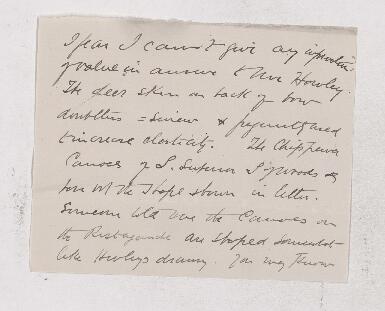 I fear I can't give any information
of value in answer to Mr Howley.
The deer skin on back of bow
doubtless = sinew & frequently used
to increase elasticity. The Chippewa
Canoes of L. Superior & Woods
have not the shape shown in letter.
Someone told me the Canoes on
the Restigouche are shaped somewhat
like Howleys drawing. You may know